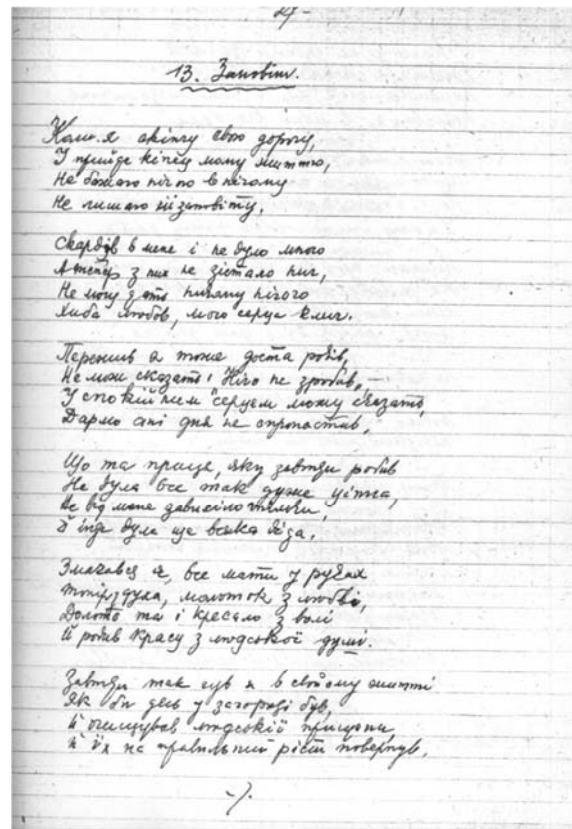 27 -
13. Заповіт.
Коли я скінчу свою дорогу,
І прийде кінець мому життю,
Не бажаю нічого в нікому
Не лишаю й заповіту.
Скарбів в мене і не було много
А тепер з них не зістало нич,
Не можу дати никому нічого
Хиба любов, мого серця клич.
Пережив я тоже доста років,
Не можу сказати: Ничо не зробив,
У спокійнім серцем можу сказати,
Дармо ані дня не спропастив.
Що та праця, яку завжди робив
Не була все так дуже цінна,
Не від мене зависіло тільки,
Й інде була ще всяка біда.
Змагався я, все мати у руках
духа, молоток з любві,
Долото та і кресало з волі
Й робив красу з людської думі.
Завжди так був я в свойому житті
Як би десь у загороді був,
Й очищував людській
Й їх на правильний ріст повернув.
-/.